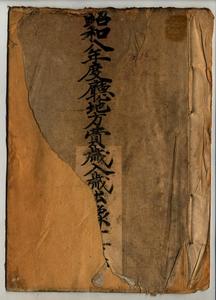 昭和八年度廳地方費歳入歳出豫